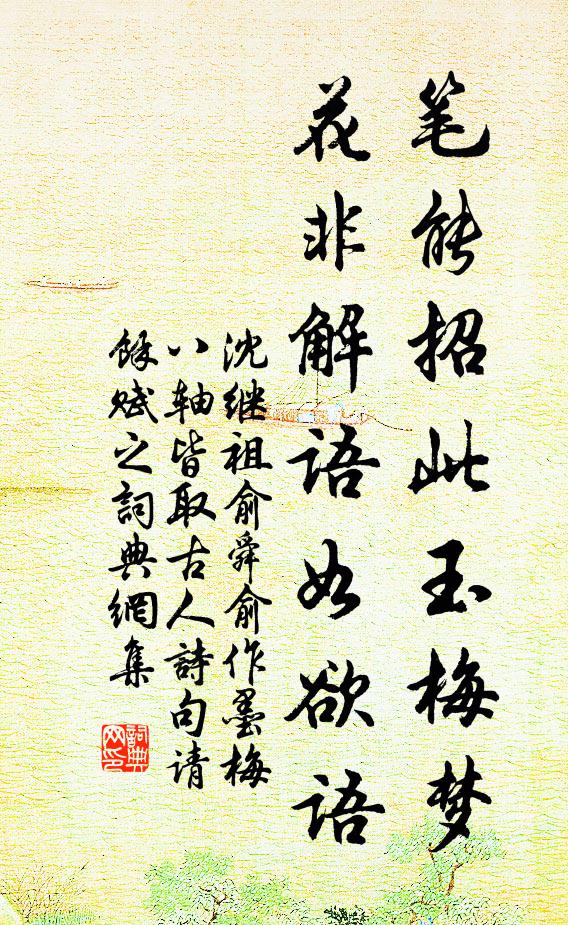 笔能招此玉梅梦
花非解语如欲语
沈继祖俞舜俞作墨梅
八轴皆取古人詩句请
馀赋之詞典網集
詞典
网印